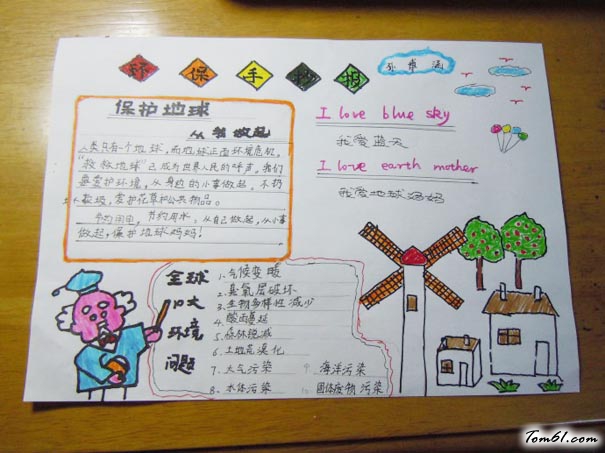 环保手抄报
保护地球
从我做起
人类只有一个地球,而地球正面环境危机,
"救救地球"已成为世界人民的呼声。我们
要爱护环境,从身边的小事做起,不扔
爱护花草和公共物品。
节约用电,节约用水,从自己做起,从小事
做起,保护地球妈妈!
I love blue sky
我爱蓝天
I love earth mother
我爱地球妈妈
全球
10大
环境
问题
1、气候变暖
2、臭氧层破坏
3、生物多样性减少
4、酸雨蔓延
5、森林锐减
6、土地荒漠化
7、大气污染
8、水体污染
9、海洋污染
10、固体废物污染
Tom61.com